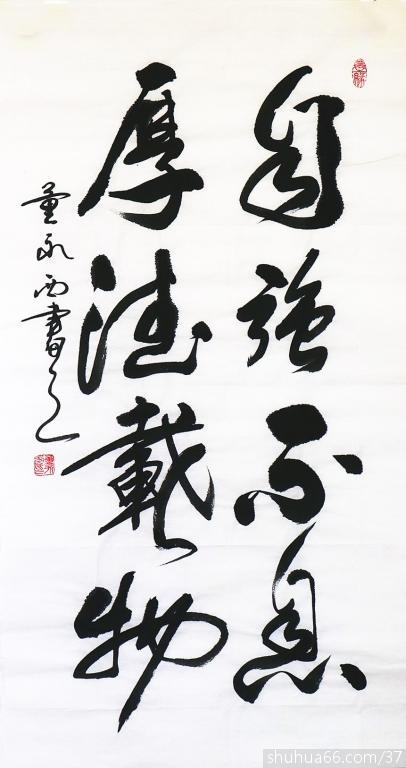 自強不息
厚德載物
董永西書之
shuhua66.com/37